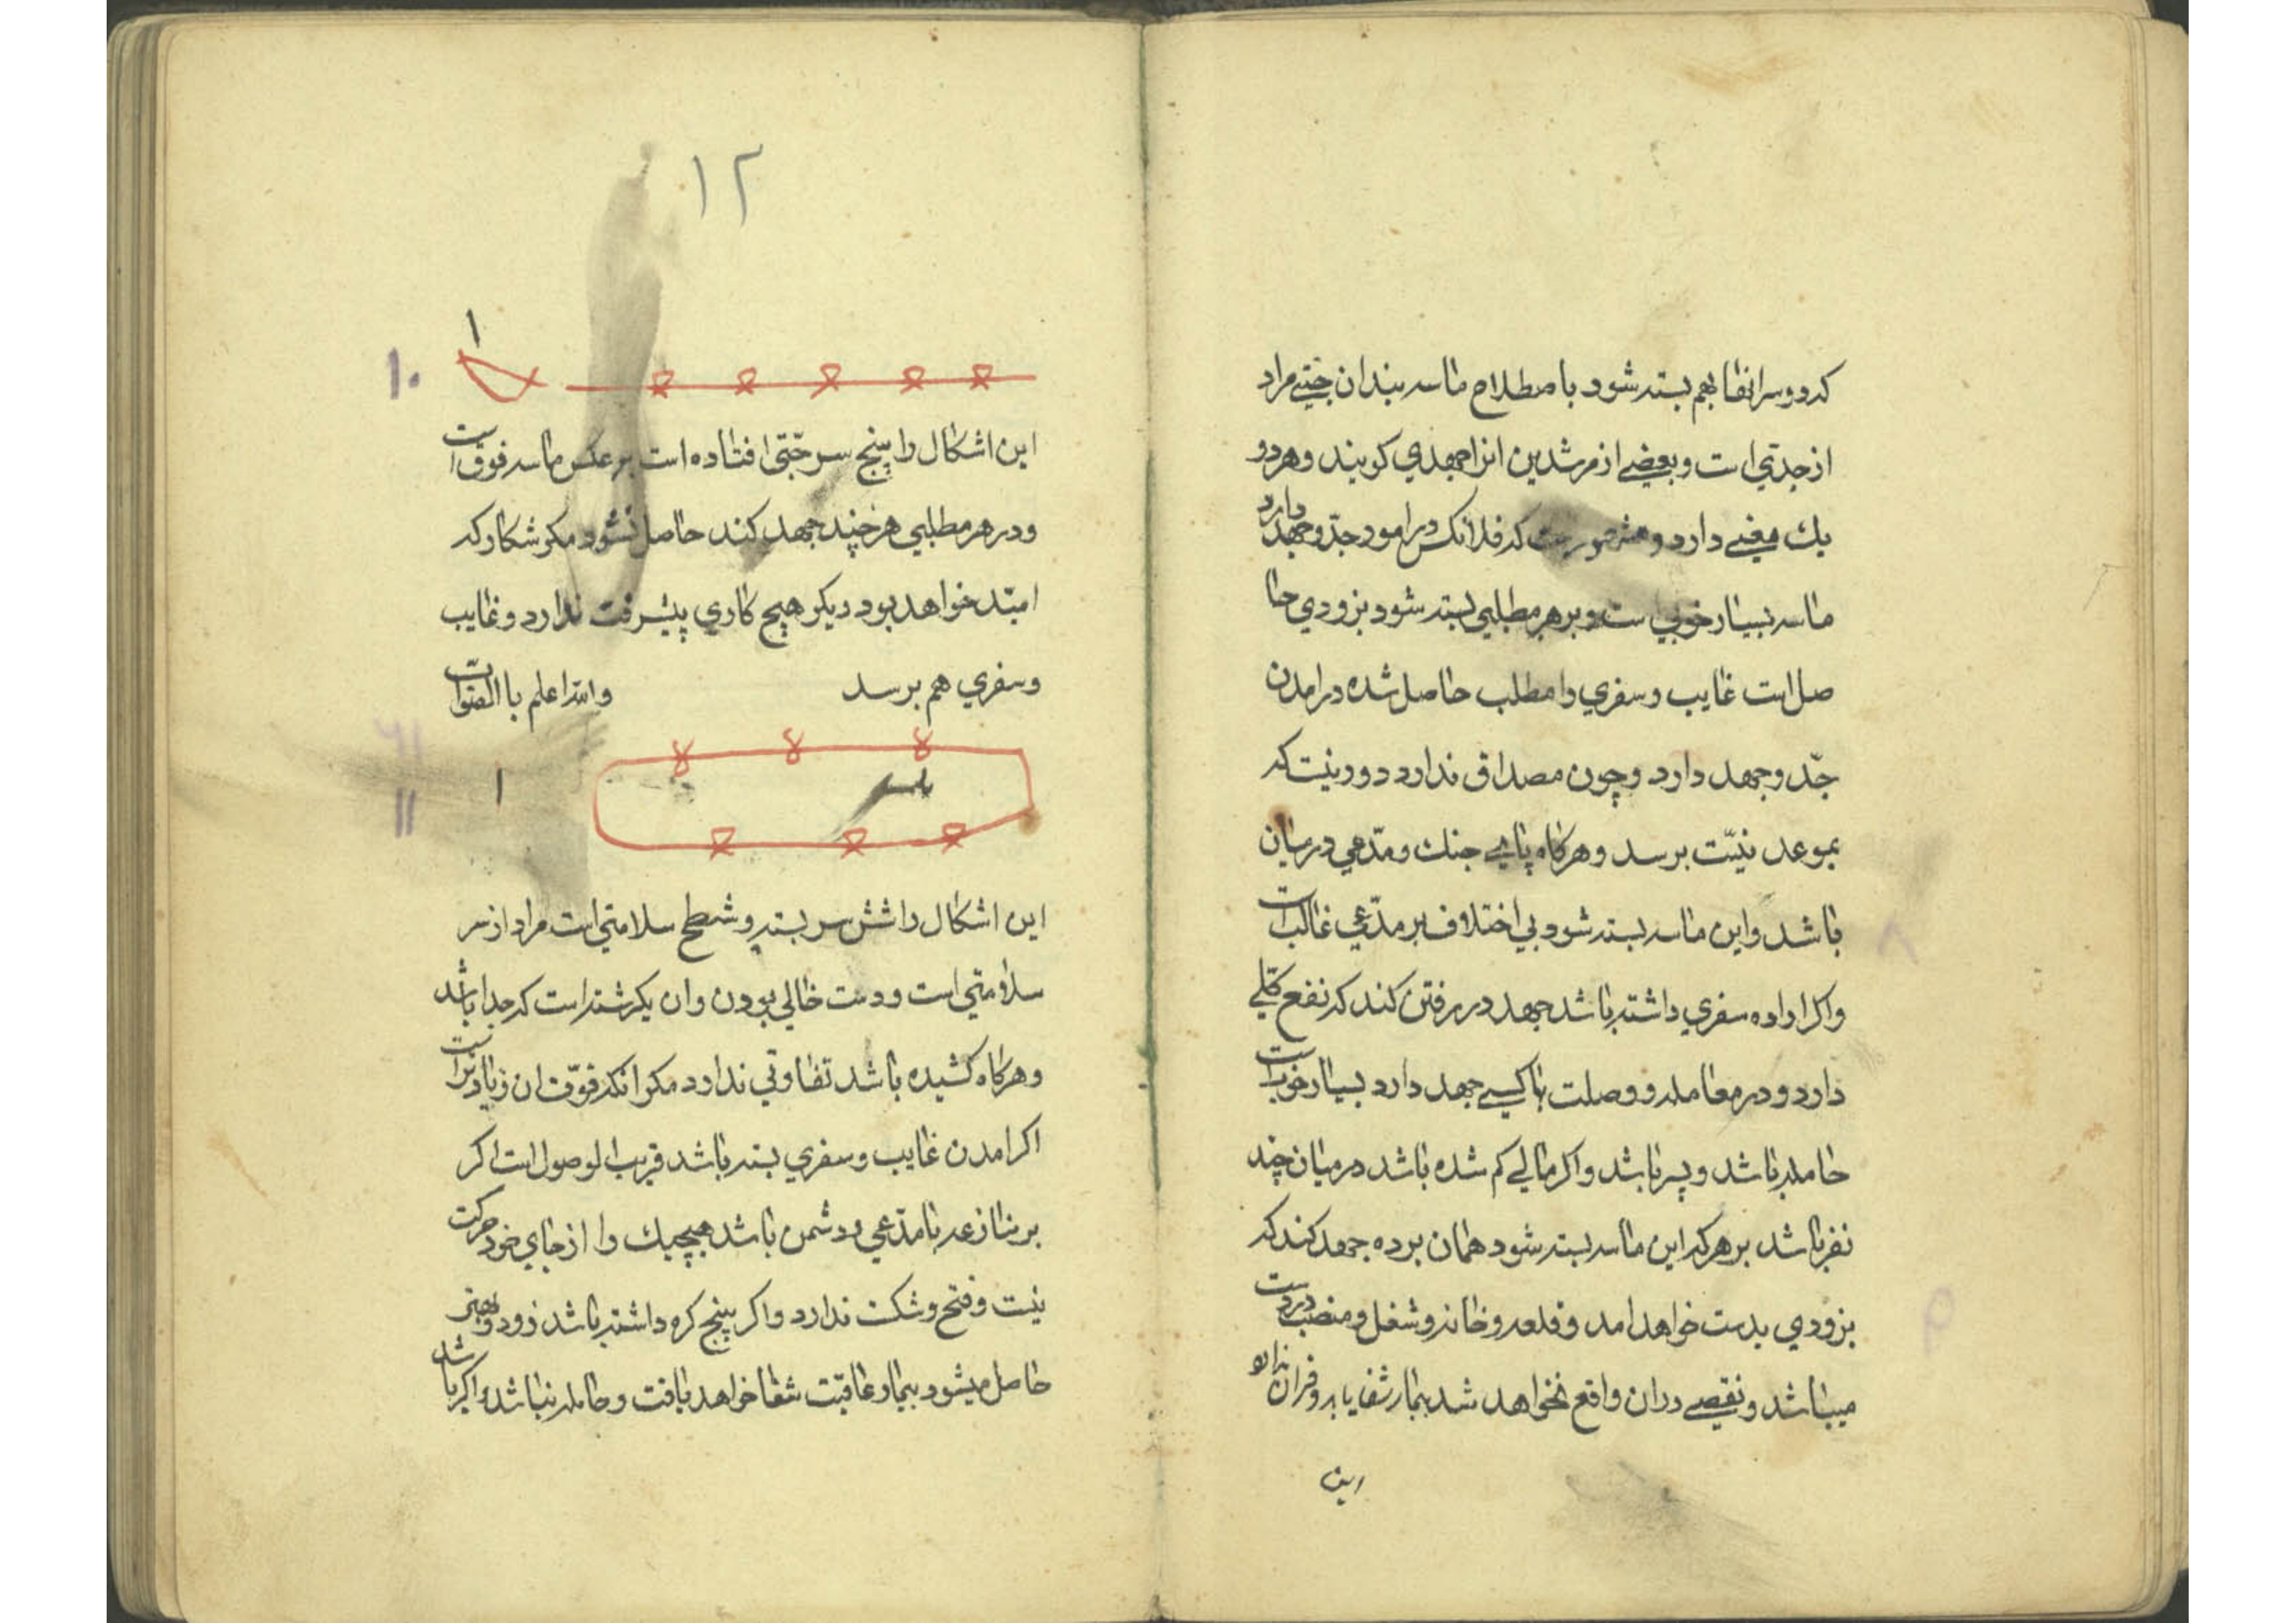 که دو سر انها بهم بسته شود باصطلاح ماسه بندان جتی مراد
از جدتي است و بعضے از مرشدین انرا جهدي کویند و هر دو
یك معنے دارد و که فلانکس در امور جدّ و جهد دارد
ماسه بسیار خوبي ست و بر هر مطلبي بسته شود بزودي حا
صل است غایب و سفري را مطلب حاصل شده در امدن
جدّ و جهد دارد و چون مصداق ندارد دور نیست که
بموعد نیّت برسد و هرکاه پاي جنك و مدّعي در میان
باشد و این ماسه بسته شود بي اختلاف بر مدّعي غالب است
و اکر اراده سفري داشته باشد جهد در رفتن کند که نفع کلّے
دارد و در معامله و وصلت با کسے جهد دارد بسیار خوب است
حامله باشد و پسر باشد و اکر مالے کم شده باشد در میان چند
نفر باشد بر هر که این ماسه بسته شود همان برده جهد کند که
بزودي بدست خواهد امد و قلعه و خانه و شغل و منصب درست
میباشد و نقصے دران واقع نخواهد شد بیمار شفا یابد و فرزان ندارد
این
۱۲
۱
۱۰
این اشکال را پنج سر جتّی افتاده است بر عکس ماسه فوق است
و در هر مطلبي هر چند جهد کند حاصل نشود مکر شکار که
امتد خواهد بود دیکر هیچ کاري پیشرفت ندارد و غایب
و سفري هم برسد والله اعلم با الصّواب
۱
۱۱
این اشکال را شش سر بسته و شطح سلامتي است مراد از سر
سلامتي است و دست خالي بودن و ان یکرشته است که جدا باشد
و هرکاه کشیده باشد تفاوتي ندارد مکر انکه قوّت ان زیادتر است
اکر امدن غایب و سفري بسته باشد قریب الوصول است اکر
بر منازعه با مدّعي و دشمن باشد هیچیك را از جاي خود حرکت
نیست و فتح و شکست ندارد و اکر پنج کره داشته باشد زود و بهتر
حاصل میشود بیمار عاقبت شفا خواهد یافت و حامله نباشد و اکر باشد